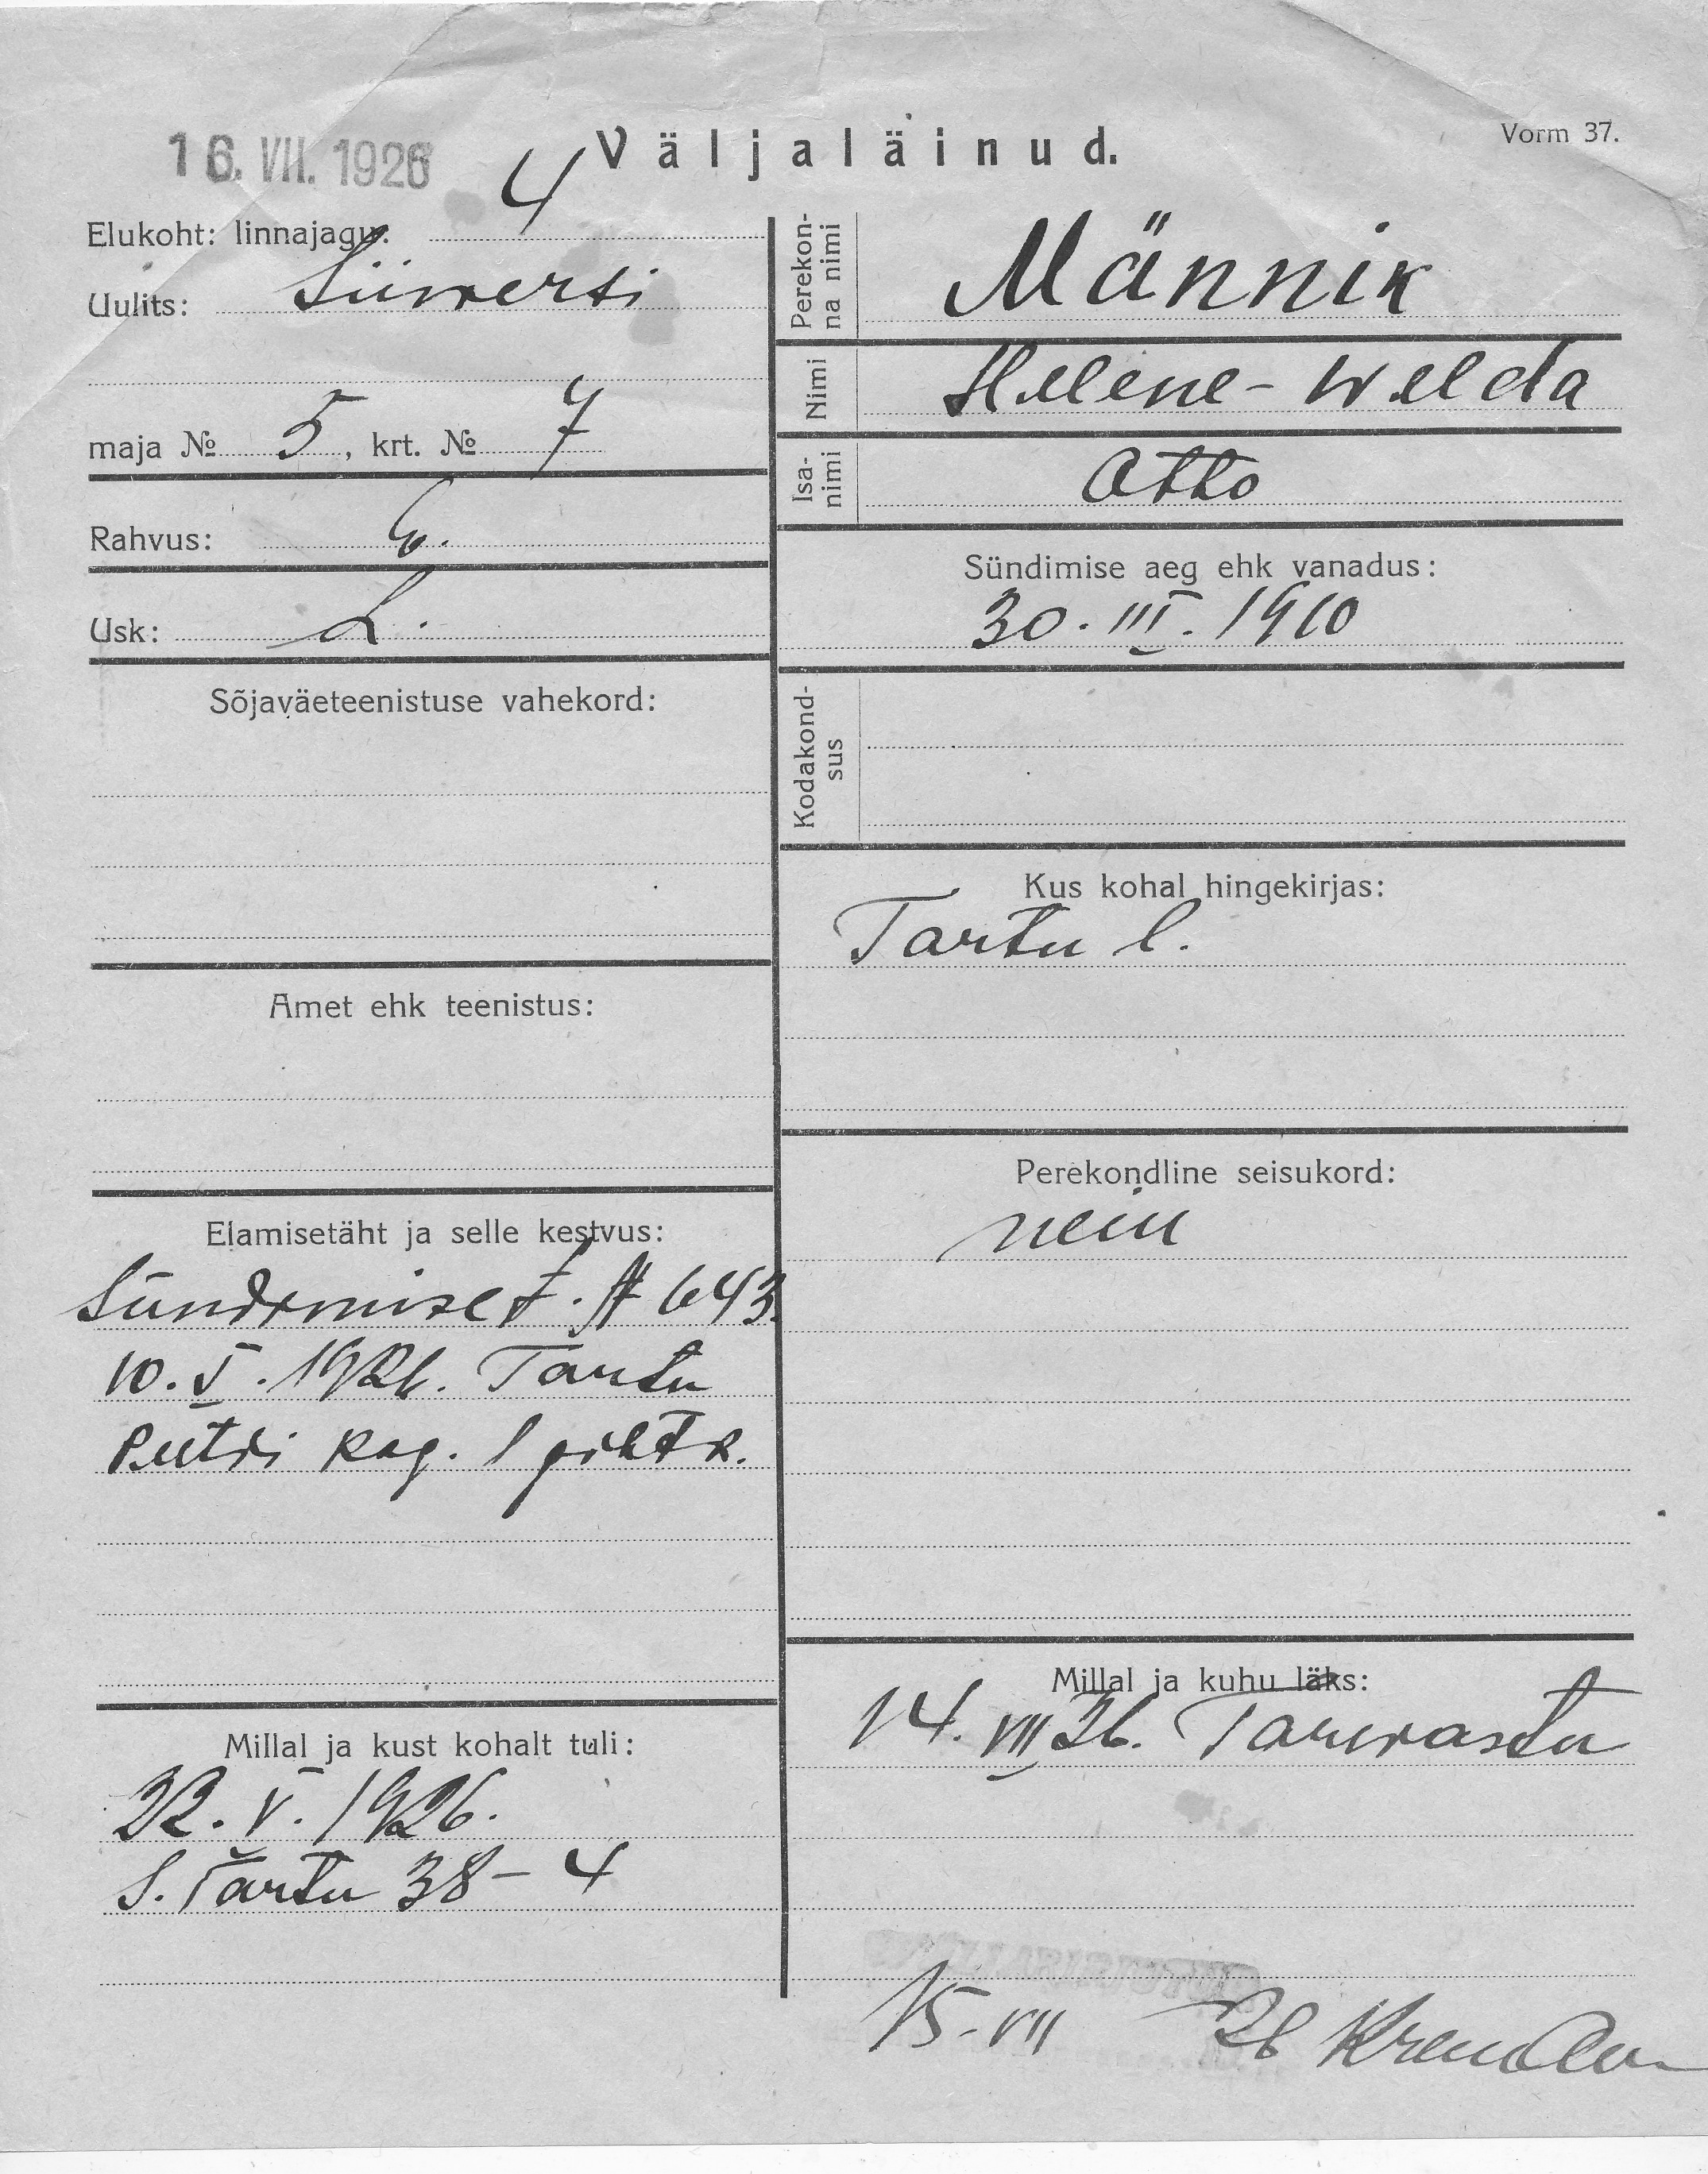 16. VII. 1926
Väljaläinud.
Vorm 37.
Elukoht: linnajagu: 4
Uulits: Siiwersi
maja № 5, krt. № 7
Rahvus: E.
Usk: L.
Sõjaväeteenistuse vahekord:
Amet ehk teenistus:
Elamisetäht ja selle kestvus:
Sündimise t. № 643.
10. V. 1926. Tartu
Peetri kog. I pihtk.
Millal ja kust kohalt tuli:
22. V. 1926.
S. Tartu 38-4
Perekonna nimi Männik
Nimi Helene-Welda
Isanimi Otto
Sündimise aeg ehk vanadus:
30. III. 1910
Kodakondsus
Kus kohal hingekirjas:
Tartu l.
Perekondline seisukord:
neiu
Millal ja kuhu läks:
14. VII 26. Tarwastu
15-VII 26